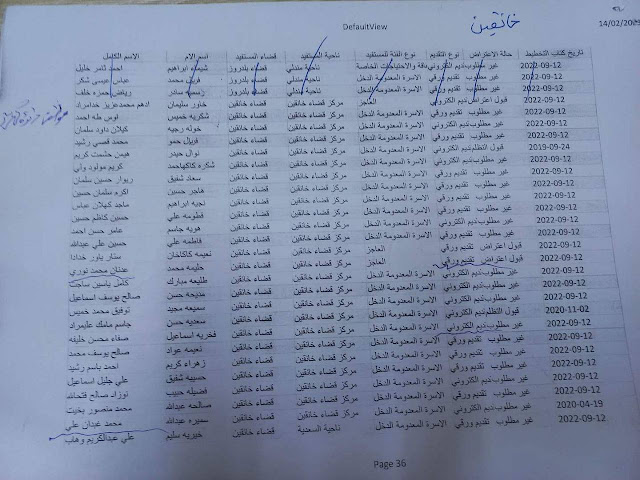 خانقين
DefaultView
14/02/2023
تاريخ كتاب التخطيط حالة الاعتراض نوع التقديم نوع الفئة للمستفيد ناحية المستفيد قضاء المستفيد اسم الام الاسم الكامل
2022-09-12 غير مطلوب تقديم الكتروني والاحتياجات الخاصة ناحية مندلي قضاء بلدروز شيماء ابراهيم احمد ثامر خليل
2022-09-12 غير مطلوب تقديم ورقي الاسرة المعدومة الدخل ناحية مندلي قضاء بلدروز فوبيل محمد عباس عيسى شكر
2022-09-12 غير مطلوب تقديم ورقي الاسرة المعدومة الدخل ناحية مندلي قضاء بلدروز رسميه سادر رياض حمزه خلف
2022-09-12 قبول اعتراض تقديم الكتروني العاجز مركز قضاء خانقين قضاء خانقين خاور سليمان ادهم محمدعزيز خدامراد
2022-09-12 غير مطلوب تقديم ورقي الاسرة المعدومة الدخل مركز قضاء خانقين قضاء خانقين شكريه خميس اوس طه احمد
2022-09-12 غير مطلوب تقديم ورقي الاسرة المعدومة الدخل مركز قضاء خانقين قضاء خانقين خوله رجبه كيلان داود سلمان
2022-09-12 غير مطلوب تقديم ورقي الاسرة المعدومة الدخل مركز قضاء خانقين قضاء خانقين فوبيل حمو محمد قصي رشيد
2019-09-24 قبول التظلم تقديم الكتروني الاسرة المعدومة الدخل مركز قضاء خانقين قضاء خانقين نوال حيدر هيمن حشمت كريم
2022-09-12 غير مطلوب تقديم الكتروني الاسرة المعدومة الدخل مركز قضاء خانقين قضاء خانقين شكره كاكهاحمد كريم مولود ولي
2022-09-12 غير مطلوب تقديم ورقي الاسرة المعدومة الدخل مركز قضاء خانقين قضاء خانقين سعاد شفيق ريوار حسين سلمان
2022-09-12 غير مطلوب تقديم ورقي الاسرة المعدومة الدخل مركز قضاء خانقين قضاء خانقين هاجر حسين اكرم سلمان حسين
2022-09-12 غير مطلوب تقديم ورقي الاسرة المعدومة الدخل مركز قضاء خانقين قضاء خانقين نجيه ابراهيم ماجد كيلان عباس
2022-09-12 غير مطلوب تقديم ورقي الاسرة المعدومة الدخل مركز قضاء خانقين قضاء خانقين فطومه علي حسين كاظم حسين
2022-09-12 غير مطلوب تقديم الكتروني الاسرة المعدومة الدخل مركز قضاء خانقين قضاء خانقين هويه جاسم عامر حسن احمد
2022-09-12 غير مطلوب تقديم ورقي الاسرة المعدومة الدخل مركز قضاء خانقين قضاء خانقين فاطمه علي حسين علي عبدالله
2022-09-12 قبول اعتراض تقديم ورقي العاجز مركز قضاء خانقين قضاء خانقين نعيمه كاكاخان ستار ياور خدادا
2022-09-12 غير مطلوب تقديم ورقي العاجز مركز قضاء خانقين قضاء خانقين حليمه محمد عدنان محمد نوري
2022-09-12 غير مطلوب تقديم الكتروني الاسرة المعدومة الدخل مركز قضاء خانقين قضاء خانقين طليعه مبارك كامل ياسين ساجت
2022-09-12 غير مطلوب تقديم الكتروني الاسرة المعدومة الدخل مركز قضاء خانقين قضاء خانقين مديحة حسن صالح يوسف اسماعيل
2022-09-12 غير مطلوب تقديم الكتروني الاسرة المعدومة الدخل مركز قضاء خانقين قضاء خانقين سميعه مجيد توفيق محمد خميس
2020-11-02 قبول التظلم تقديم الكتروني الاسرة المعدومة الدخل مركز قضاء خانقين قضاء خانقين سعديه حسن جاسم مامك عليمراد
2022-09-12 غير مطلوب تقديم الكتروني الاسرة المعدومة الدخل مركز قضاء خانقين قضاء خانقين فخريه اسماعيل صفاء محسن خليفه
2022-09-12 غير مطلوب تقديم ورقي الاسرة المعدومة الدخل مركز قضاء خانقين قضاء خانقين نعيمه عواد صالح يوسف محمد
2022-09-12 غير مطلوب تقديم ورقي الاسرة المعدومة الدخل مركز قضاء خانقين قضاء خانقين زهراء كريم احمد باسم رشيد
2022-09-12 غير مطلوب تقديم ورقي الاسرة المعدومة الدخل مركز قضاء خانقين قضاء خانقين حسيبه شفيق علي جليل اسماعيل
2022-09-12 غير مطلوب تقديم الكتروني الاسرة المعدومة الدخل مركز قضاء خانقين قضاء خانقين فضيله حبيب نوزاد صالح فتحالله
2022-09-12 غير مطلوب تقديم ورقي الاسرة المعدومة الدخل مركز قضاء خانقين قضاء خانقين صالحه عبدالله محمد منصور بخيت
2020-04-19 غير مطلوب تقديم الكتروني الاسرة المعدومة الدخل مركز قضاء خانقين قضاء خانقين سميره عبدالله محمد عبدان علي
2022-09-12 غير مطلوب تقديم ورقي الاسرة المعدومة الدخل ناحية السعدية قضاء خانقين خيريه سليم علي عبدالكريم وهاب
Page 36